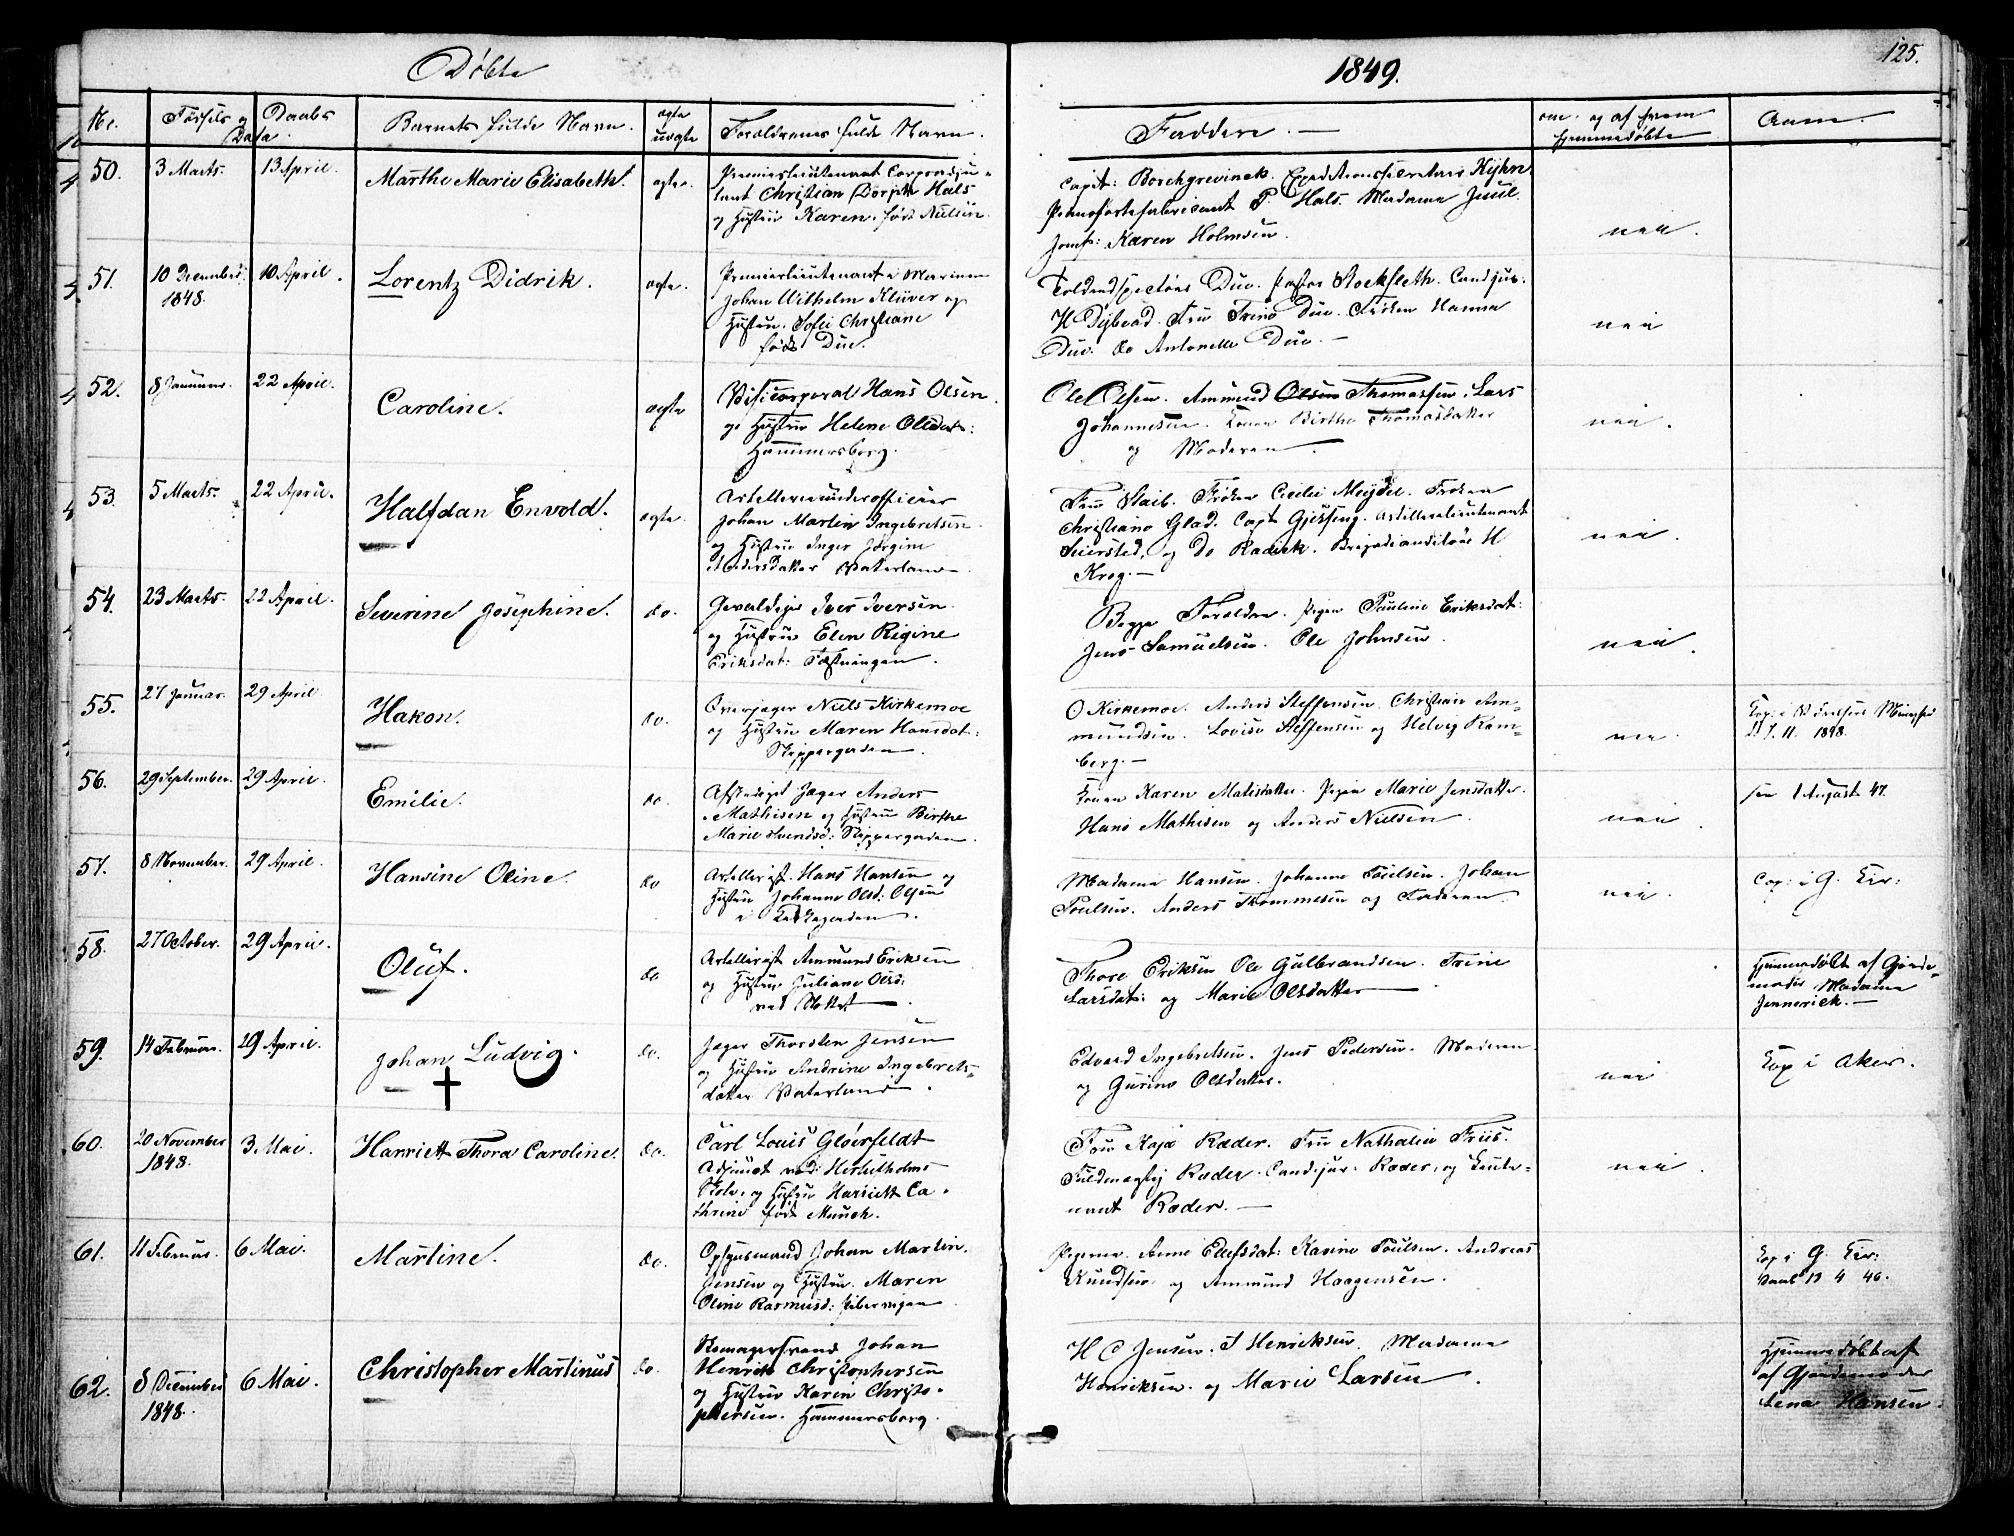 Døbte
1849.
125.
No. Fødsels og Daabs Data. Barnets fulde Navn. ægte uægte Forældrenes fulde Navn. Faddere. om og af hvem hjemmedøbte Anm.
50. 3 Marts. 13 April. Marthe Marie Elisabeth. ægte.
Christian Hals
og Hustru Karen, født Nielsen.
Capt: Borchgrevinck. Expeditionssecretair Kyhn
Pianofortefabricant P. Hals. Madame Juul.
Jomf: Karen Holmsen.
nei.
51. 10 December 1848. 10 April. Lorentz Didrik. ægte.
Premierlieutenant i Marinen
Johan Wilhelm Klüver og
Hustru. Sofie Christiane
født Due.
Toldinspecteur Due. Pastor Stockfleth. Cand jur.
H Due. Frøken Hanna
Due. do Antonette Due.
nei
52. 8 Januar. 22 April. Caroline. ægte
Vicecorporal Hans Olsen.
og Hustru Helene Olsdat:
Hammersborg.
Ole Olsen. Ammund Olsen Thomassen, Lars
Johannesen. Konen Birthe Thomasdatter
og Moderen
nei.
53. 5 Marts. 22 April. Halfdan Envold. ægte.
Artilleriunderofficier
Johan Martin Ingebretsen.
og Hustru Inger Jørgine
Pedersdatter Vaterland
Fru Staib. Frøken Cecilie Meydel. Frøken
Christiane Glad. Capt Gjessing. Artillerilieutenant
Seiersted, og do Radich. Brigadeauditør H
Krog.
nei.
54. 23 Marts. 22 April. Severine Josephine. do.
Gevaldiger Iver Iversen.
og Hustru Elen Rigine
Eriksdat: Fæstningen.
Begge Forældre. Pigen Pauline Eriksdat:
Jens Samuelsen. Ole Johnsen.
nei.
55. 27 Januar. 29 April. Hakon. do.
Overjæger Niels Kirkemoe
og Hustru Maren Hansdat:
Skippergaden.
O Kirkemoe. Anders Steffensen. Christian Am-
mundsen. Lovise Steffensen og Helvig Ram-
berg.
nei.
11. 1898.
56. 29 September. 29 April. Emilie. do
Afskediget Jæger Anders
Mathisen og Hustru Birthe
Marie Svendsd: Skippergaden.
Konen Karen Matisdatter. Pigen Marie Jensdatter.
Hans Mathisen og Anders Nielsen.
nei.
1 August 47.
57. 8 November. 29 April. Hansine Oline. do
Artillerist. Hans Hansen og
Hustru Johanne Olsd: Olsen
i
Madame Hansen. Johanne Poulsen. Johan
Poulsen. Anders Thommesen og Faderen.
nei.
Cop: i G.
58. 27 October. 29 April. Oluf. do
Artillerist Ammund Eriksen
og Hustru Juliane Olsd:
ved Slottet
Thore Eriksen Ole Gulbrandsen. Trine
Larsdat: og Marie Olsdatter
Hjemmedøbt af Gjorde-
moder Madame
Jennerich.
59. 14 Februar. 29 April. Johan Ludvig. do.
Jæger Thorsten Jensen
og Hustru Andrine Ingebrets-
datter Vaterland.
Edvard Ingebretsen. Jens Pedersen. Moderen
og Gurine Olsdatter.
nei
Cop i Aker.
60. 20 November 1848. 3 Mai. Harriett Thora Caroline. do.
Carl Louis Gløerfeldt
Adjunct ved Hertetholms
Skole, og Hustru Harriett Ca-
thrine født Munch.
Fru Kaja Ræder. Fru Nathalie Friis.
Fuldmægtig Ræder. Cand jur: Ræder, og Lieute-
nant Ræder.
nei.
61. 11 Februar. 6 Mai. Martine. do.
Opsynsmand Johan Martin.
Jensen og Hustru. Maren
Oline Rasmusd: Pibervigen.
Pigerne. Anne Ellefsdat: Karine Poulsen. Andreas
Knudsen og Ammund Haagensen.
Cop i G.
13 4 46.
62. 8 December 1848. 6 Mai. Christopher Martinus do.
Johan
Henrik Christophersen
og Hustru Karen Christo-
phersen. Hammersborg.
H C Jensen. Henriksen. Madame
Henriksen. og Marie Larsen.
Hjemmedøbt af
af Gjordemoder
Lena Hansen.